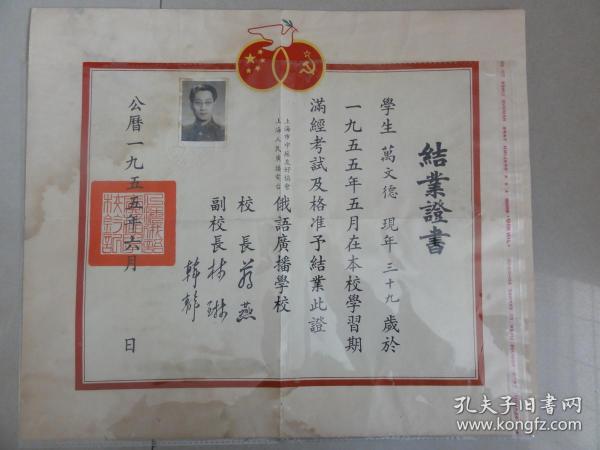 結業證書
學生 萬文德 現年 三十九 歲於
一九五五年五月在本校學習期
滿經考試及格准予結業此證
上海市中蘇友好協會
上海人民廣播電台
俄語廣播學校
校長
副校長
公曆一九五五年六月 日
孔夫子旧书网
www.kongfz.com